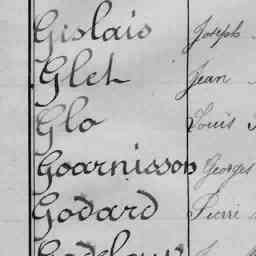 Gislais Joseph
Glet Jean
Glo Louis
Goarnisson Georges
Godard Pierre